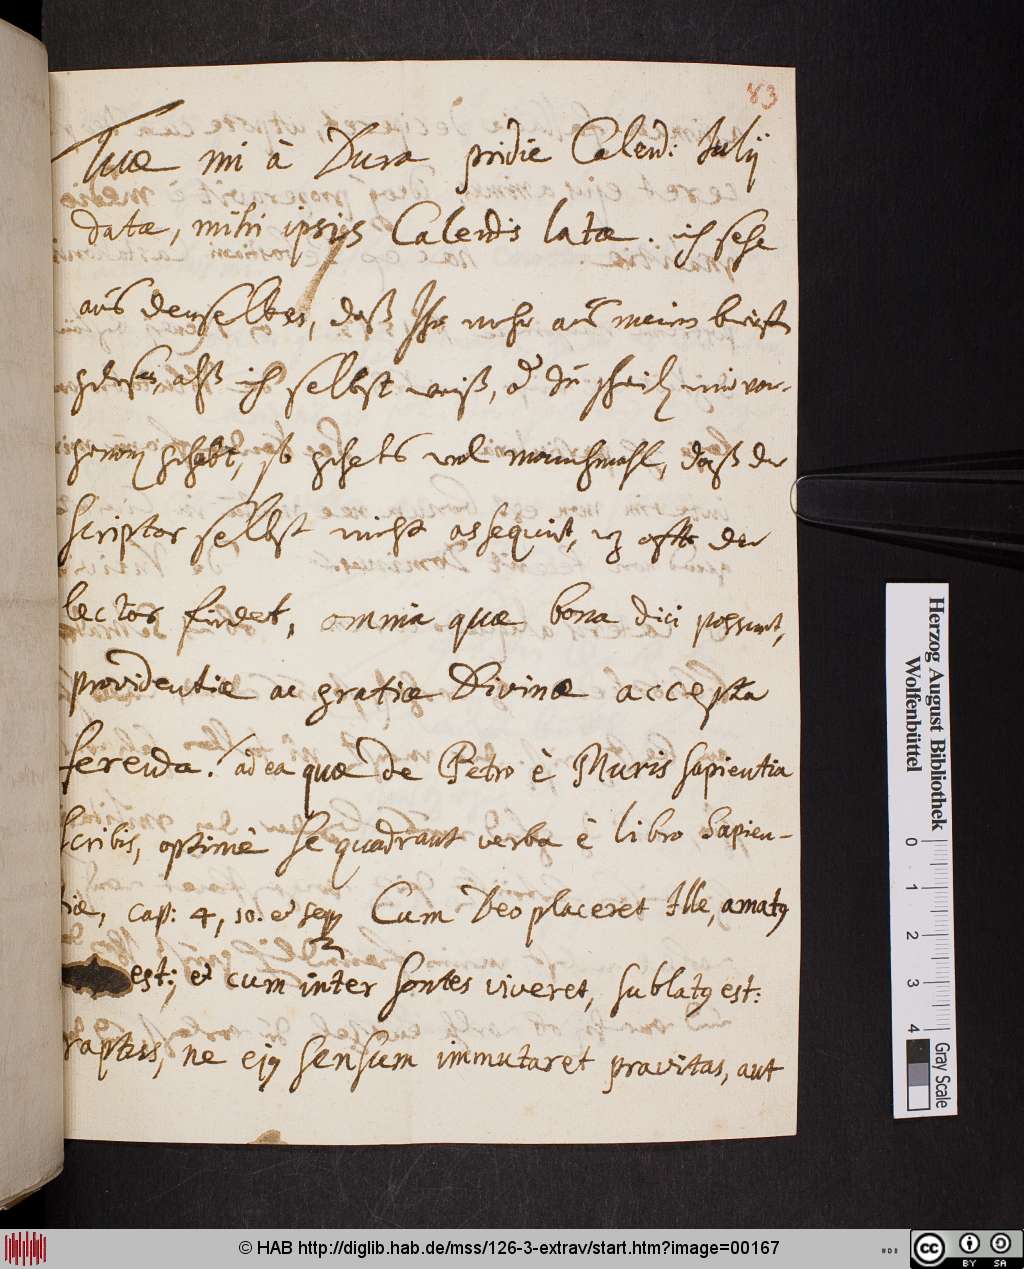 83
Tuæ mi à Dura pridie Calend: Julij
datæ, mihi ipsijs Calendis latæ. ich sehe
auß denselben, daß Ihr mehr auß meinen brieffen
geleßen, alß ich selbst weiß, oder
gehabt, so gehets wol manchmahl, daß der
scriptor selbst nicht assequirt, wz offte der
lector findet, omnia quæ bona dici possunt,
providentiæ ac gratiæ Divinæ accepta
ferenda. ad ea quæ de Petro è Muris sapientia
scribis, optimè se quadrant verba è libro Sapien-
tiæ, cap: 4, 10. et seqq Cum Deo placeret Ille, amatq
est; et cum inter sontes viveret, sublatq est:
raptus, ne ejq sensum immutaret pravitas, aut
Herzog August Bibliothek
Wolfenbüttel
0 1 2 3 4
Gray Scale
© HAB http://diglib.hab.de/mss/126-3-extrav/start.htm?image=00167
cc BY SA